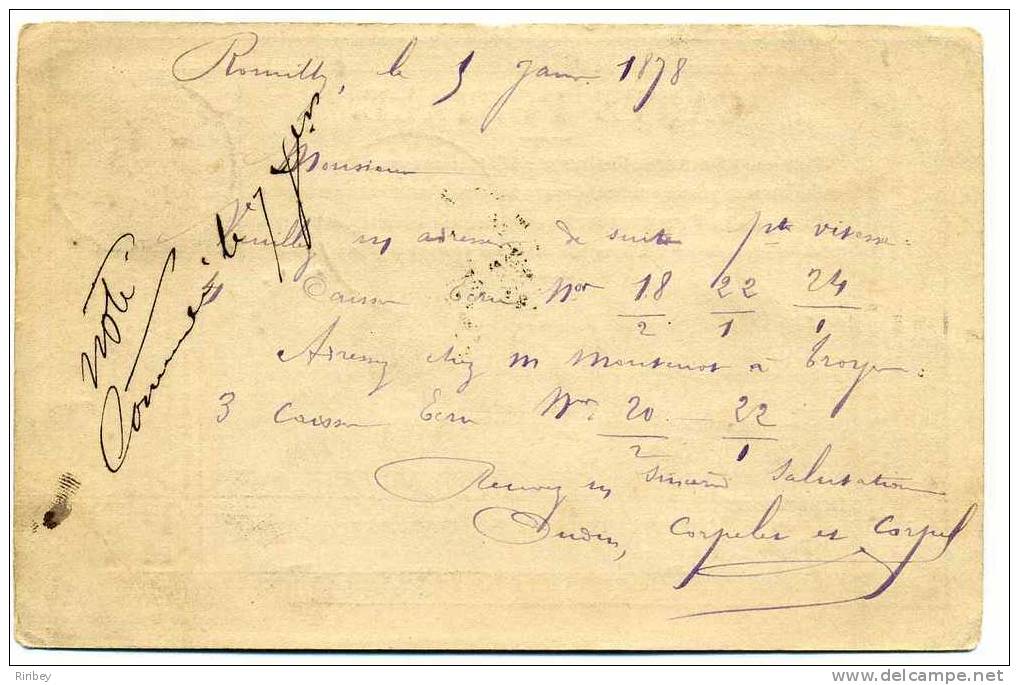 Romilly, le 5 Janv. 1878
Monsieur
Veuillez m adresser de suite pte vitesse.
4 Caisses Ecru Nos 18/2 22/1 24/1
Adressez chez m Montenot à Troyes.
3 Caisses Ecru Nos 20/2 – 22/1
Recevez m sincères Salutations
Corpelet et Corpel
Noté.
Commune le 7
Rirbey
www.delcampe.net